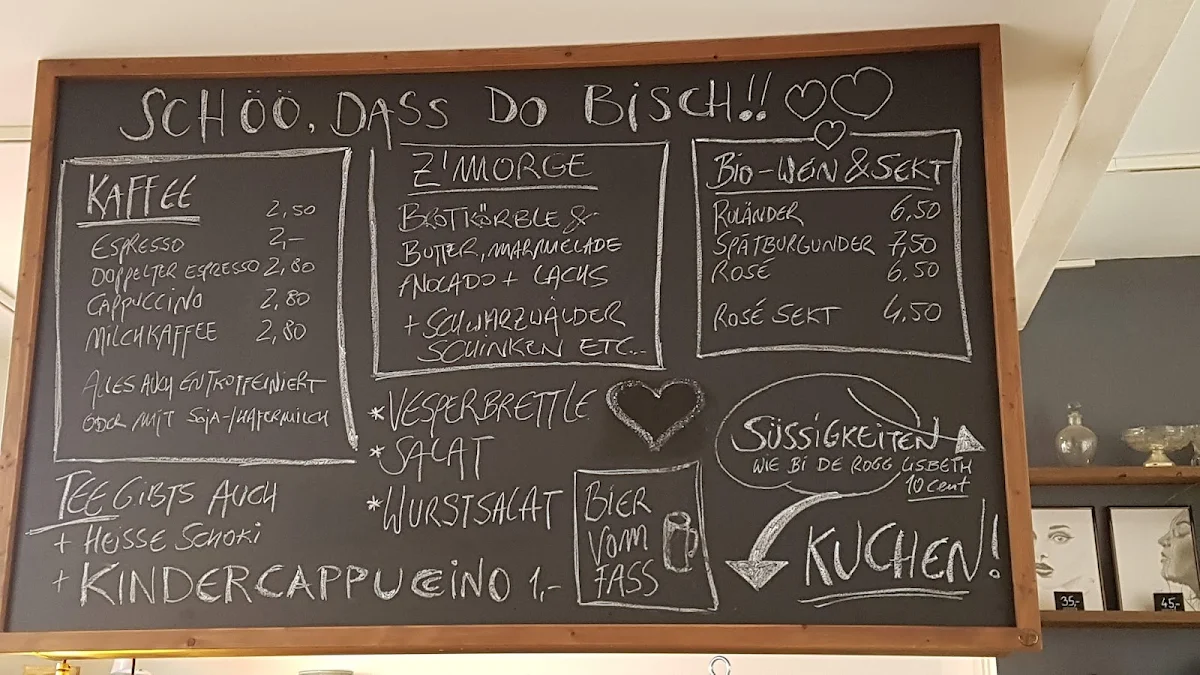 SCHÖÖ, DASS DO BISCH!!
KAFFEE 2,50
ESPRESSO 2,–
DOPPELTER ESPRESSO 2,80
CAPPUCCINO 2,80
MILCHKAFFEE 2,80
ALLES AUCH ENTKOFFEINIERT
ODER MIT SOJA-/HAFERMILCH
TEE GIBTS AUCH
+ HEISSE SCHOKI
+ KINDERCAPPUCCINO 1,-
Z'MORGE
BROTKÖRBLE &
BUTTER, MARMELADE
AVOCADO + LACHS
+ SCHWARZWÄLDER
SCHINKEN ETC...
*VESPERBRETTLE
*SALAT
*WURSTSALAT
BIER
VOM
FASS
BIO-WEIN & SEKT
RULÄNDER 6,50
SPÄTBURGUNDER 7,50
ROSÉ 6,50
ROSÉ SEKT 4,50
SÜSSIGKEITEN
WIE BI DE ROGG LISBETH
10 cent
KUCHEN!
35,-
45,-